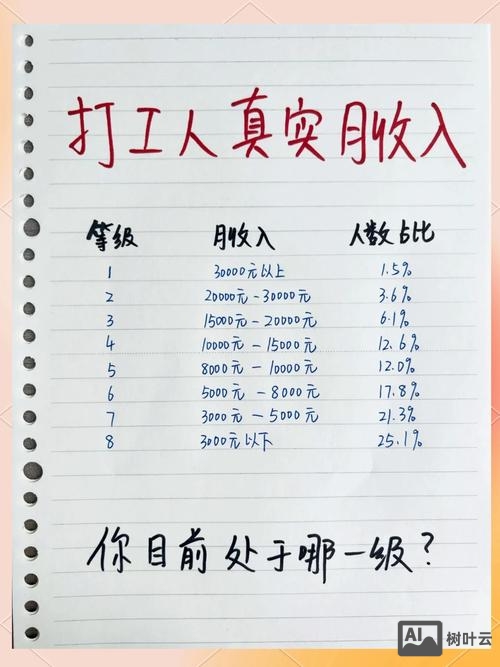 打工人真实月收入
等级 月收入 人数占比
1 30000元以上 1.5%
2 20000元-30000元 3.6%
3 15000元-20000元 6.1%
4 10000元-15000元 12.6%
5 8000元-10000元 12.0%
6 5000元-8000元 17.8%
7 3000元-5000元 21.3%
8 3000元以下 25.1%
你目前处于哪一级?
AI 树叶云